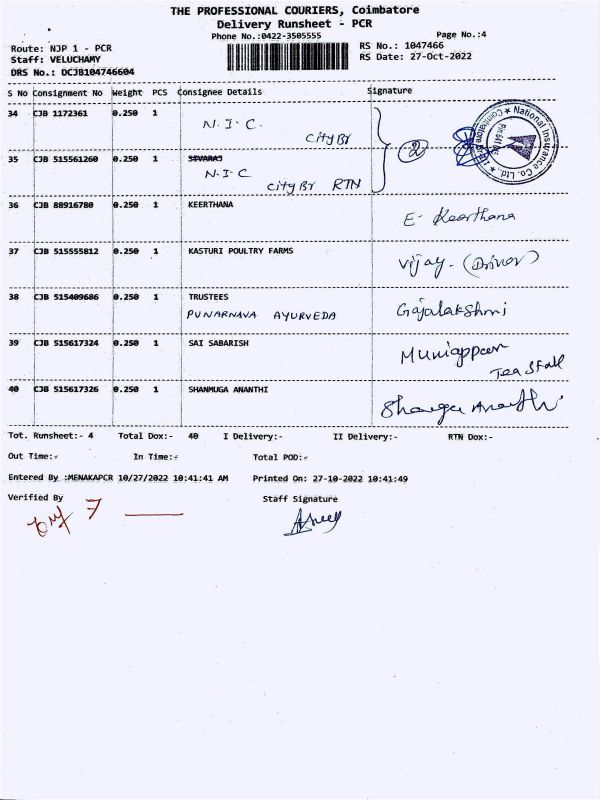 THE PROFESSIONAL COURIERS, Coimbatore
Delivery Runsheet - PCR
Phone No.:0422-3505555
Page No.:4
Route: NJP 1 - PCR
RS No.: 1047466
Staff: VELUCHAMY
RS Date: 27-Oct-2022
DRS No.: DCJB104746604
S No Consignment No Weight PCS Consignee Details Signature
34 CJB 1172361 0.250 1 N.I.C. City Br
35 CJB 515561260 0.250 1 SIVARAJ
N.I.C City Br RTN
2
National Insurance Co. Ltd.,
36 CJB 88916780 0.250 1 KEERTHANA E- Keerthana
37 CJB 515555812 0.250 1 KASTURI POULTRY FARMS Vijay - (Driver)
38 CJB 515409686 0.250 1 TRUSTEES
PUNARNAVA AYURVEDA Gajalakshmi
39 CJB 515617324 0.250 1 SAI SABARISH Muniappan
Tea Stall
40 CJB 515617326 0.250 1 SHANMUGA ANANTHI
Tot. Runsheet:- 4 Total Dox:- 40 I Delivery:- II Delivery:- RTN Dox:-
Out Time:- In Time:- Total POD:-
Entered By :MENAKAPCR 10/27/2022 10:41:41 AM Printed On: 27-10-2022 10:41:49
Verified By Staff Signature